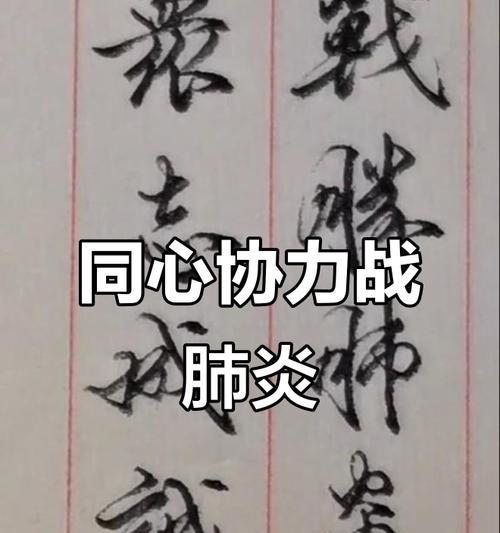 戰勝肺炎
衆志成
同心协力战
肺炎